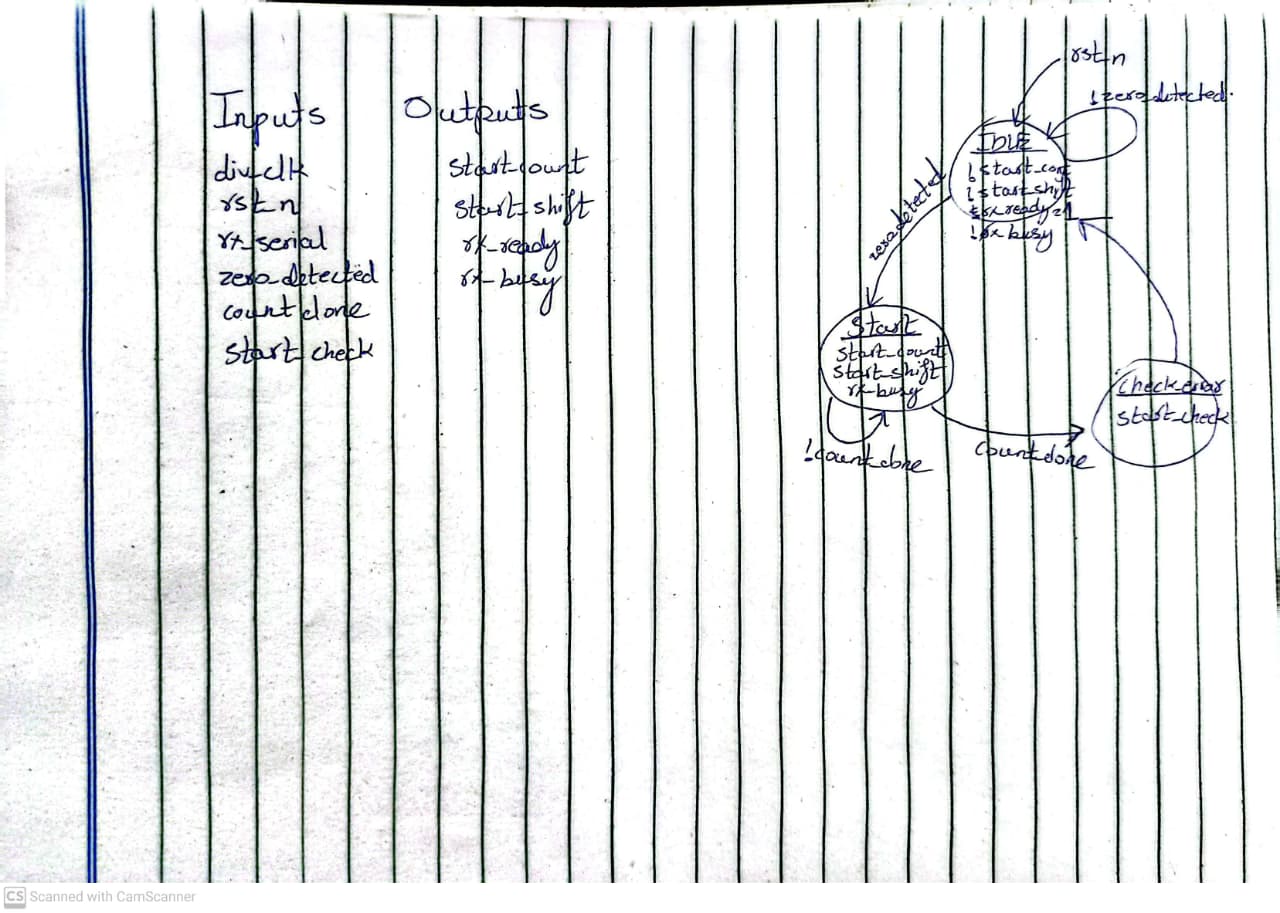 Inputs
div_clk
rst_n
rx_serial
zero_detected
count_done
start_check
Outputs
start_count
start_shift
rx_ready
rx_busy
rst_n
!zero_detected
IDLE
!start_cont
!start_shift
rx_ready=1
!rx_busy
zero_detected
Start
start_count
start_shift
rx_busy
!count_done
count_done
check_error
start_check
CS Scanned with CamScanner